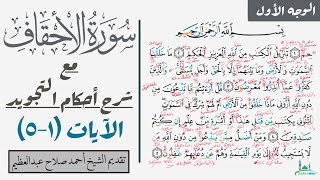 الوجه الأول
سُورَةُ الأَحْقَافِ
مع
شرح أحكام التجويد
الآيات (١-٥)
تقديم الشيخ أحمد صلاح عبدالعظيم
بِسْمِ اللَّهِ الرَّحْمَٰنِ الرَّحِيمِ
حمٓ ١ تَنزِيلُ الْكِتَٰبِ مِنَ اللَّهِ الْعَزِيزِ الْحَكِيمِ ٢ مَا خَلَقْنَا
السَّمَٰوَٰتِ وَالْأَرْضَ وَمَا بَيْنَهُمَآ إِلَّا بِالْحَقِّ وَأَجَلٍ مُّسَمًّى وَالَّذِينَ
كَفَرُوا عَمَّآ أُنذِرُوا مُعْرِضُونَ ٣ قُلْ أَرَءَيْتُم مَّا تَدْعُونَ
مِن دُونِ اللَّهِ أَرُونِي مَاذَا خَلَقُوا مِنَ الْأَرْضِ أَمْ لَهُمْ شِرْكٌ فِي
السَّمَٰوَٰتِ ائْتُونِي بِكِتَٰبٍ مِّن قَبْلِ هَٰذَآ أَوْ أَثَٰرَةٍ مِّنْ عِلْمٍ إِن كُنتُمْ
صَٰدِقِينَ ٤ وَمَنْ أَضَلُّ مِمَّن يَدْعُوا مِن دُونِ اللَّهِ مَن
لَّا يَسْتَجِيبُ لَهُ إِلَىٰ يَوْمِ الْقِيَٰمَةِ وَهُمْ عَن دُعَآئِهِمْ غَٰفِلُونَ ٥